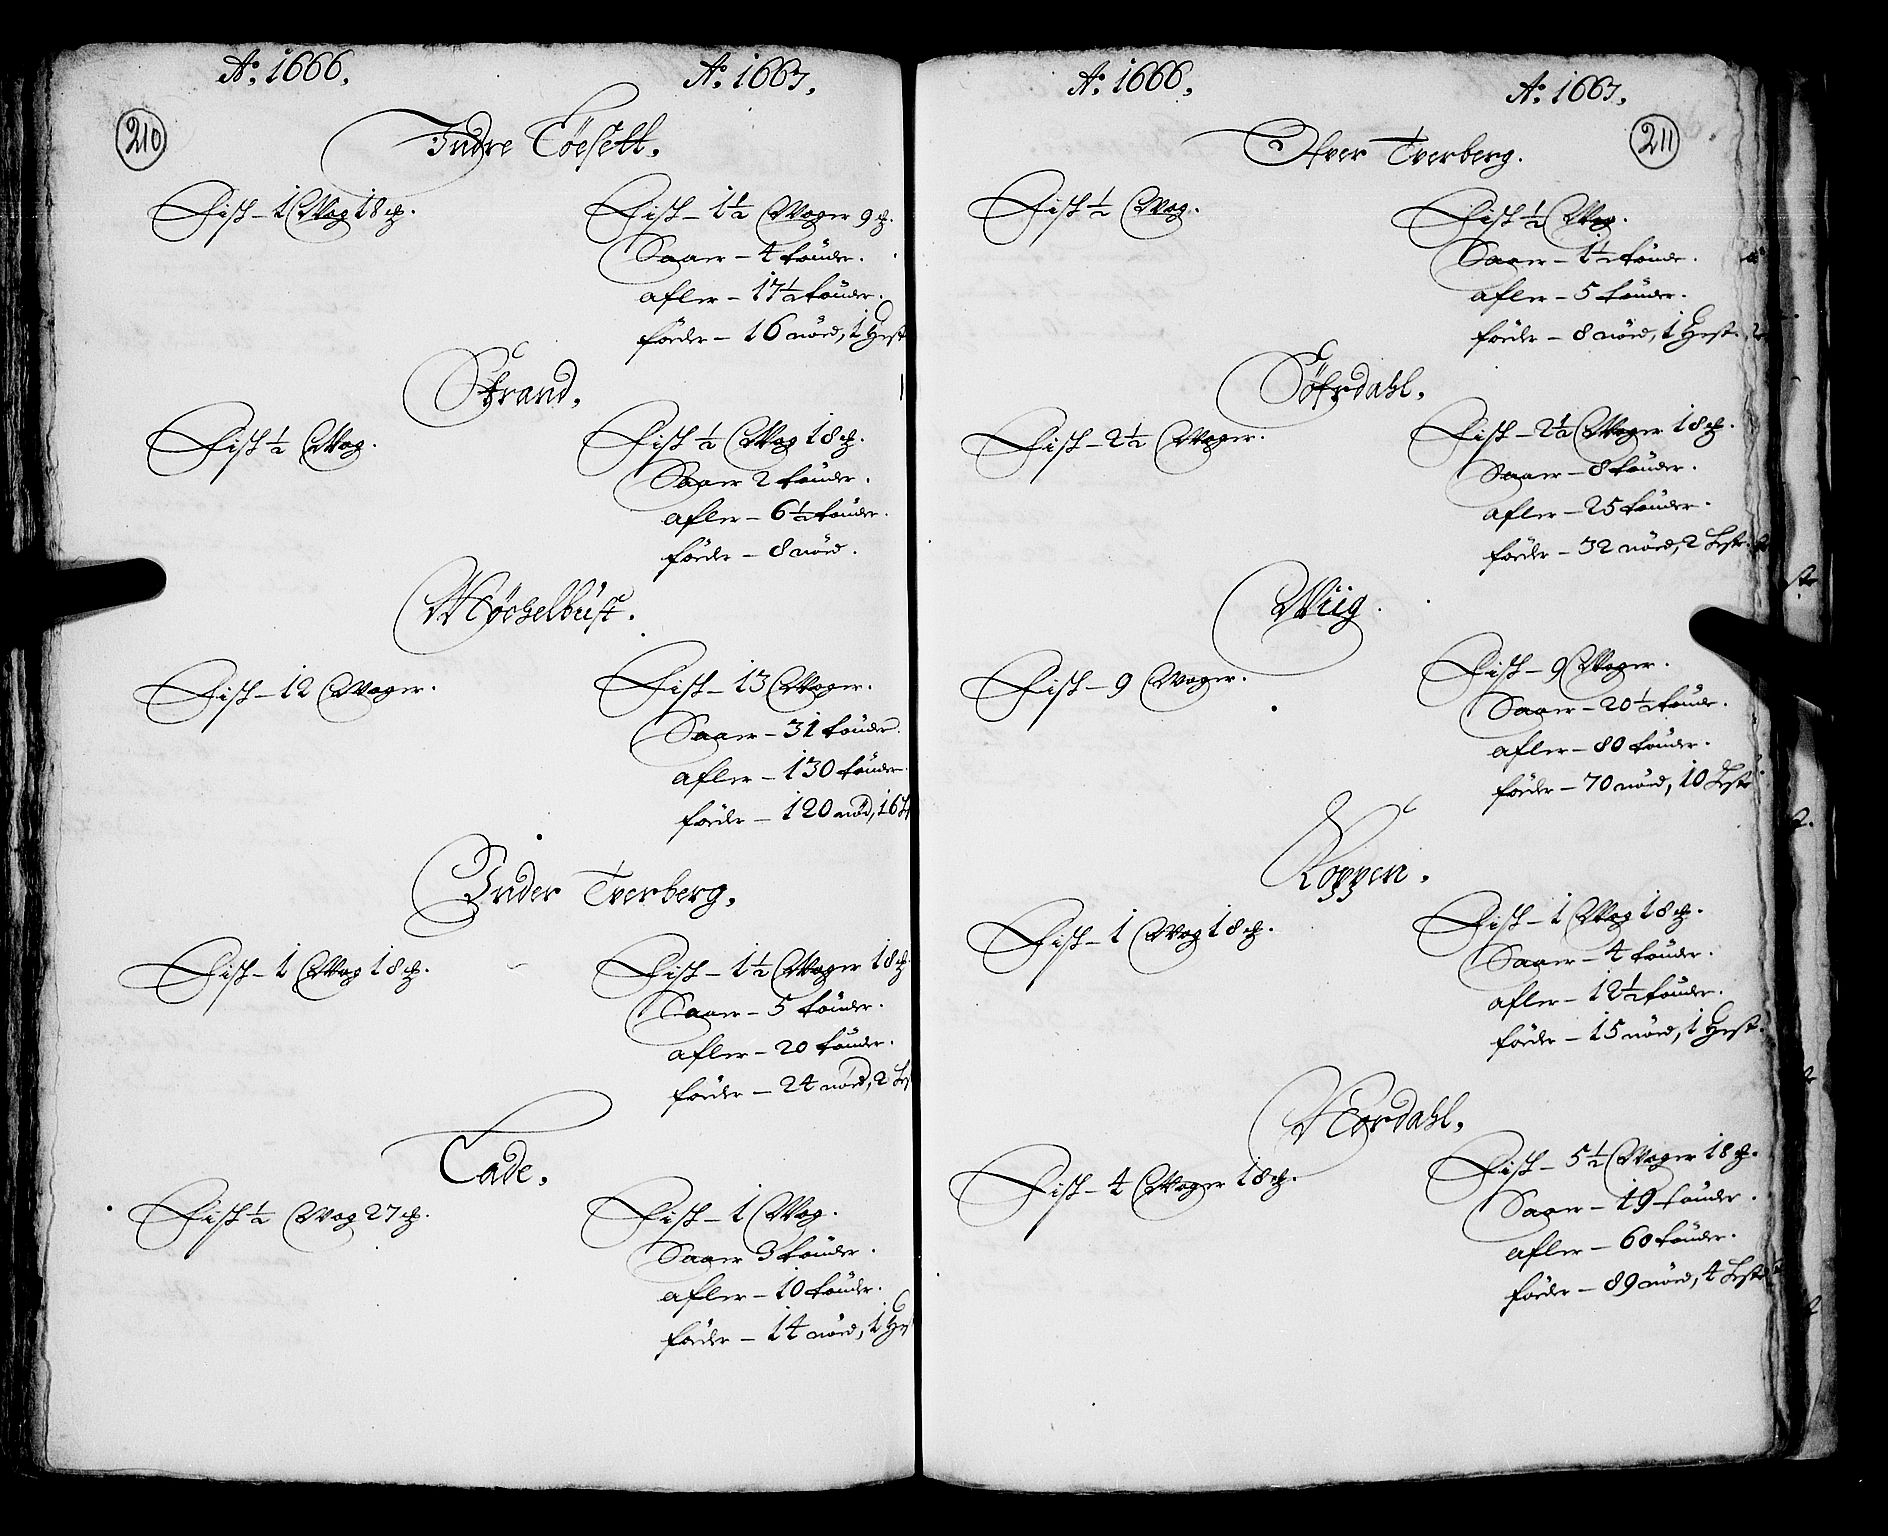 210
Aō. 1666. Aō. 1667.
Indre Töesett.
Fisk - 1 Wog 18 ℔. Fisk - 1½ Woger 9 ℔.
Saaer - 4 tönder.
afler - 17½ tönder.
föeder - 16 nöed, 1 Hest
Strand.
Fisk ½ Wog. Fisk ½ Wog 18 ℔.
Saaer 2 tönder.
afler - 6½ tönder.
föeder - 8 nöed.
Möchelbust.
Fisk - 12 Woger. Fisk - 13 Woger.
Saaer - 31 tönder.
afler - 130 tönder.
föeder - 120 nöd, 16 H
Inder Tverberg.
Fisk - 1 Wog 18 ℔. Fisk - 1½ Woger 18 ℔.
Saaer - 5 tönder.
afler - 20 tönder.
föeder - 24 nöed, 2 hes
Tade.
Fisk ½ Wog 27 ℔. Fisk - 1 Wog.
Saaer 3 tönder.
afler - 10 tönder.
föeder - 14 nöed, 1 Hes
211
Aō. 1666. Aō. 1667.
Öfver Tverberg.
Fisk ½ Wog. Fisk ½ Wog.
Saaer - 1½ tönde.
afler - 5 tönder.
föeder - 8 nöed, 1 Hest.
Söfrdahl.
Fisk - 2½ Woger. Fisk - 2½ Woger 18 ℔.
Saaer - 8 tönder.
afler - 25 tönder.
föeder - 32 nöed, 2 heste.
Wiig.
Fisk - 9 Woger. Fisk - 9 Woger.
Saaer - 20½ tönde.
afler - 80 tönder.
föeder - 70 nöed, 10 heste
Koppen.
Fisk - 1 Wog 18 ℔. Fisk - 1 Wog 18 ℔.
Saaer - 4 tönder.
afler - 12½ tönder.
föeder - 15 nöed, 1 Hest.
Nordahl.
Fisk - 4 Woger 18 ℔. Fisk - 5½ Woger 18 ℔.
Saaer - 19 tönder.
afler - 60 tönder.
föeder - 89 nöed, 4 heste